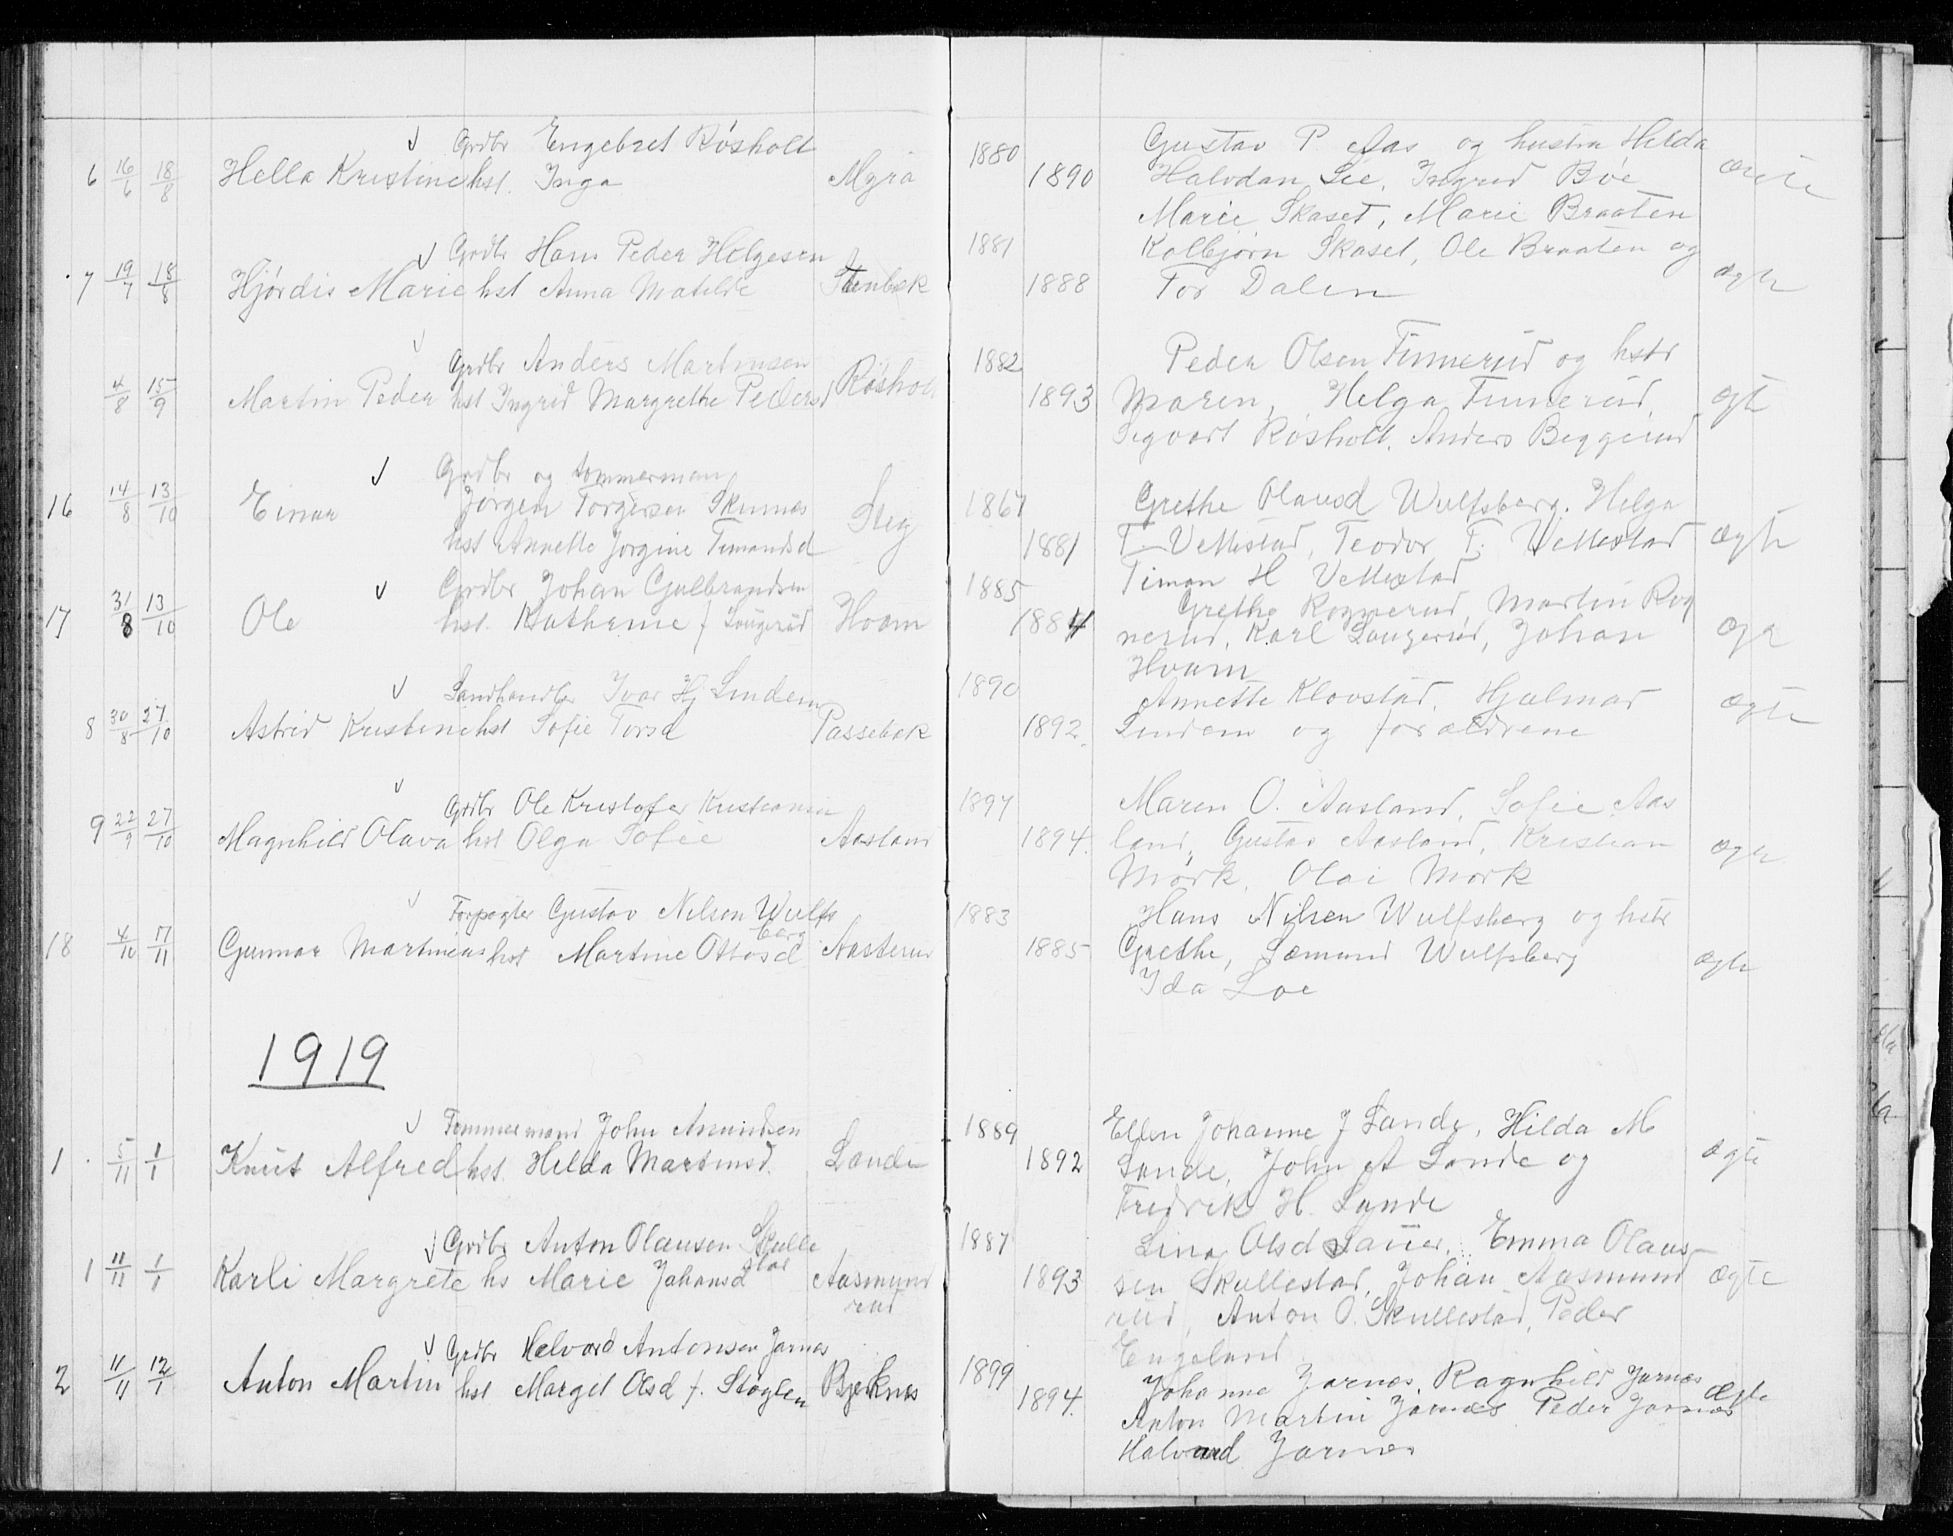 6 16/6 18/8 Hella Kristine √ Grdbr Engebret Røsholt
hst. Inga Myra
1880 1890 Gustav P. Aas og hustru Hilda
Halvdan Lie, Ingrid Bøe ægte
Marie Skaset, Marie Braaten
7 19/7 18/8 Hjørdis Marie √ Grdbr Hans Peder Helgesen
hst Anna Matilde Stenbek
1881 1888 Kolbjørn Skaset, Ole Braaten og
Tor Dalen ægte
4/8 15/9 Martin Peder √ Grdbr Anders Martinsen
hst Ingrid Margrethe Pedersd Røsholt
1882 1893 Peder Olsen Finnerud og hstr
Maren, Helga Finnerud, ægte
Sigvart Røsholt, Anders Beggerud
16 14/8 13/10 Einar √ Grdbr og tømmerman
Jørgen Torgersen Skinnes
hst Annette Jørgine Timansd Steg
1867 1881 Grethe Olausd Wulfsberg. Helga
T. Vettestad, Teodor T. Vettestad ægte
Timan H Vettestad
17 31/8 13/10 Ole √ Grdbr Johan Gulbrandsen
hst. Kathrine f Laugerud Hvam
1885 1884 Grethe Rognerud, Martin Rog
nerud, Karl Laugerud, Johan ægte
Hvam
8 30/8 27/10 Astrid Kristine √ Landhandler Ivar Hj Lindem
hst Sofie Torsd Passebek
1890 1892. Annette Klovstad, Hjalmar
Lindem og forældrene ægte
9 22/9 27/10 Magnhild Olava √ Grdbr Ole Kristofer Kristiansen
hst Olga Sofie Aasland
1897 1894. Maren O. Aasland, Sofie Aas
land, Gustav Aasland, Kristian ægte
Mørk, Olai Mørk
18 4/10 17/11 Gunnar Martinius √ Forpagter Gustav Nilsen Wulfs
berg
hst Martine Ottosd Aasterud
1883 1885 Hans Nilsen Wulfsberg og hstr
Grethe, Sæmund Wulfsberg ægte
Ida Loe
1919
1. 5/11 1/1 Knut Alfred √ Tømmermand John Amundsen
hst. Hilda Martinsd. Lande
1889 1892 Ellen Johanne J Lande, Hilda M
Lande, John A Lande og ægte
Fredrik H. Lande
1 11/11 1/1 Karli Margrete √ Grdbr Anton Olausen Skulle
stad
hs Marie Johansd Aasmund
rud
1887 1893 Lina Olsd Lauer, Emma Olaus-
sen Skullestad, Johan Aasmund ægte
rud, Anton O. Skullestad, Peder
Engeland
2 11/11 12/1 Anton Martin √ Grdbr Halvard Antonsen Jarnes
hst Margit Olsd f. Støglen Bjerknes
1899 1894. Johanne Jarnes, Ragnhild Jarnes
Anton Martin Jarnes Peder Jarnes ægte
Halvard Jarnes